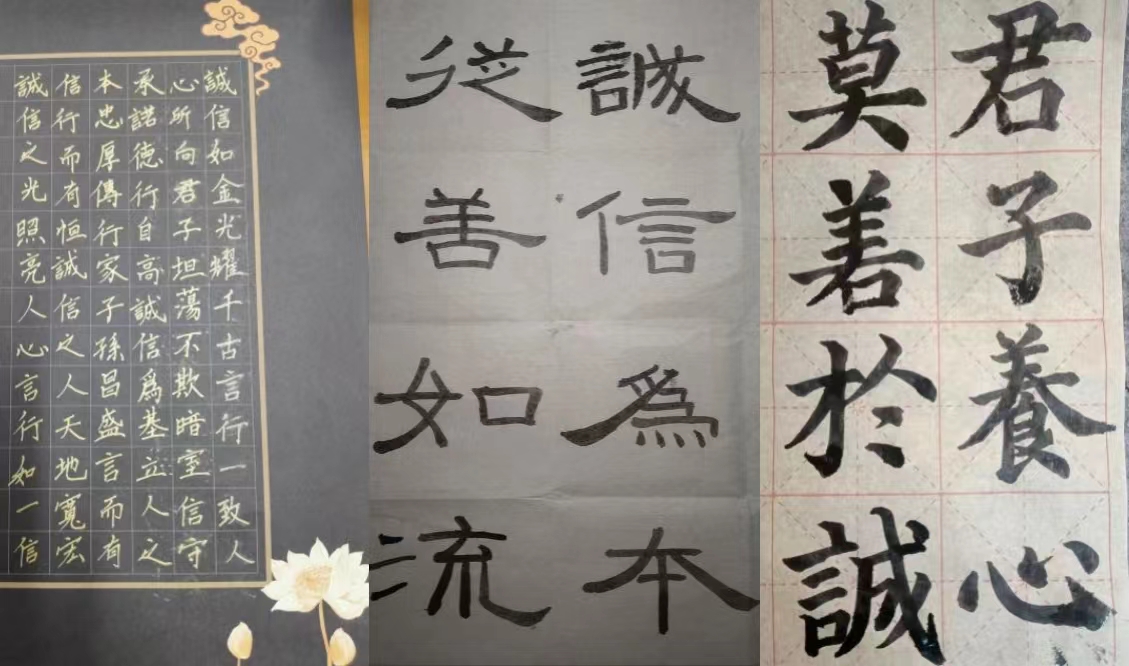 誠信如金光耀千古言行一致人
心所向君子坦蕩不欺暗室信守
承諾德行自高誠信爲基立人之
本忠厚傳行家子孫昌盛言而有
信行而有恒誠信之人天地寬宏
誠信之光照亮人心言行如一信
誠信爲本
從善如流
君子養心
莫善於誠